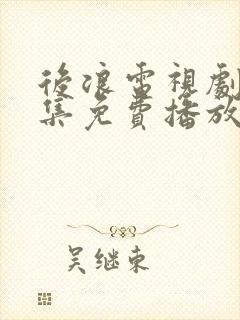 後浪電視劇
集免費播放
吴继東